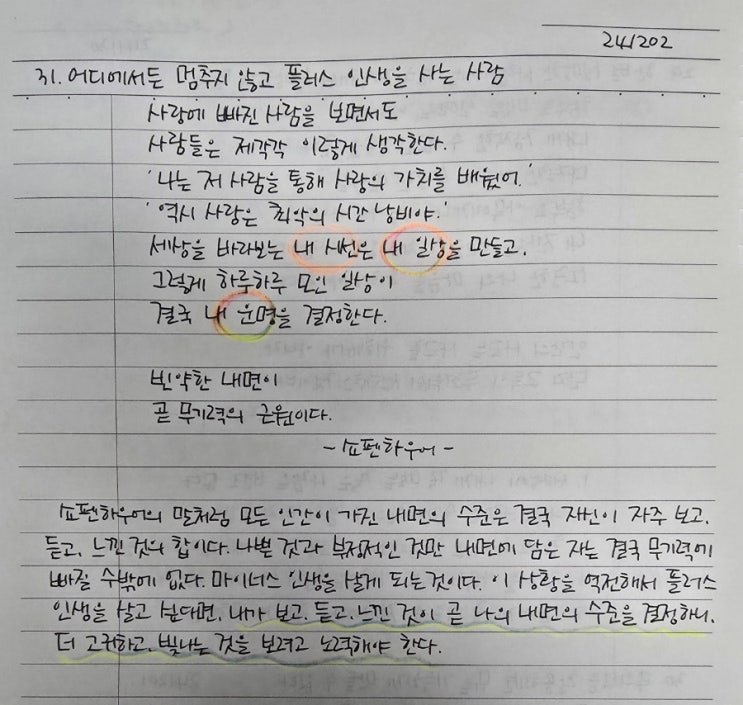 241202
31. 어디에서든 멈추지 않고 플러스 인생을 사는 사람
사랑에 빠진 사람을 보면서도
사람들은 제각각 이렇게 생각한다.
'나는 저 사람을 통해 사랑의 가치를 배웠어.'
'역시 사랑은 최악의 시간 낭비야.'
세상을 바라보는 내 시선은 내 일상을 만들고,
그렇게 하루하루 모인 일상이
결국 내 운명을 결정한다.
빈약한 내면이
곧 무기력의 근원이다.
- 쇼펜하우어 -
쇼펜하우어의 말처럼 모든 인간이 가진 내면의 수준은 결국 자신이 자주 보고,
듣고, 느낀 것의 합이다. 나쁜 것과 부정적인 것만 내면에 담은 자는 결국 무기력에
빠질 수밖에 없다. 마이너스 인생을 살게 되는 것이다. 이 상황을 역전해서 플러스
인생을 살고 싶다면, 내가 보고, 듣고, 느낀 것이 곧 나의 내면의 수준을 결정하니,
더 고귀하고, 빛나는 것을 보려고 노력해야 한다.